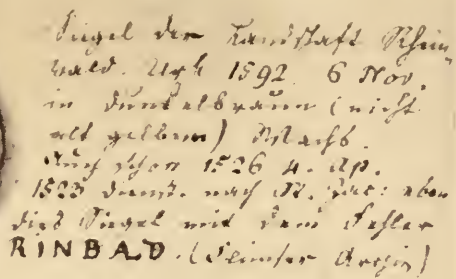 Siegel der Landschaft Rhein-
wald. Urk 1592. 6 Nov.
in dunkelbraun (nicht
alt gelbem) Wachs.
Auch schon 1526 4. Ap.
1523 nach eben
dies Siegel mit dem Fehler
RINBALD. (Flimser Archiv)